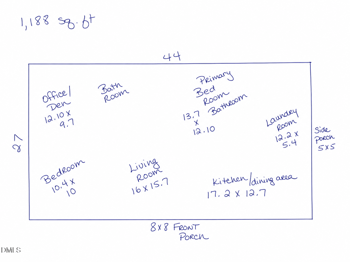 1,188 Sq. ft
44
Office/
Den
12.10 x
9.7
Bath
Room
Primary
Bed
Room
Bathroom
13.7
x
12.10
Laundry
Room
12.2 x
5.4
27
Side
Porch
5x5
Bedroom
10.4 x
10
Living
Room
16 x 15.7
Kitchen/dining area
17.2 x 12.7
8x8 FRONT
PORCH